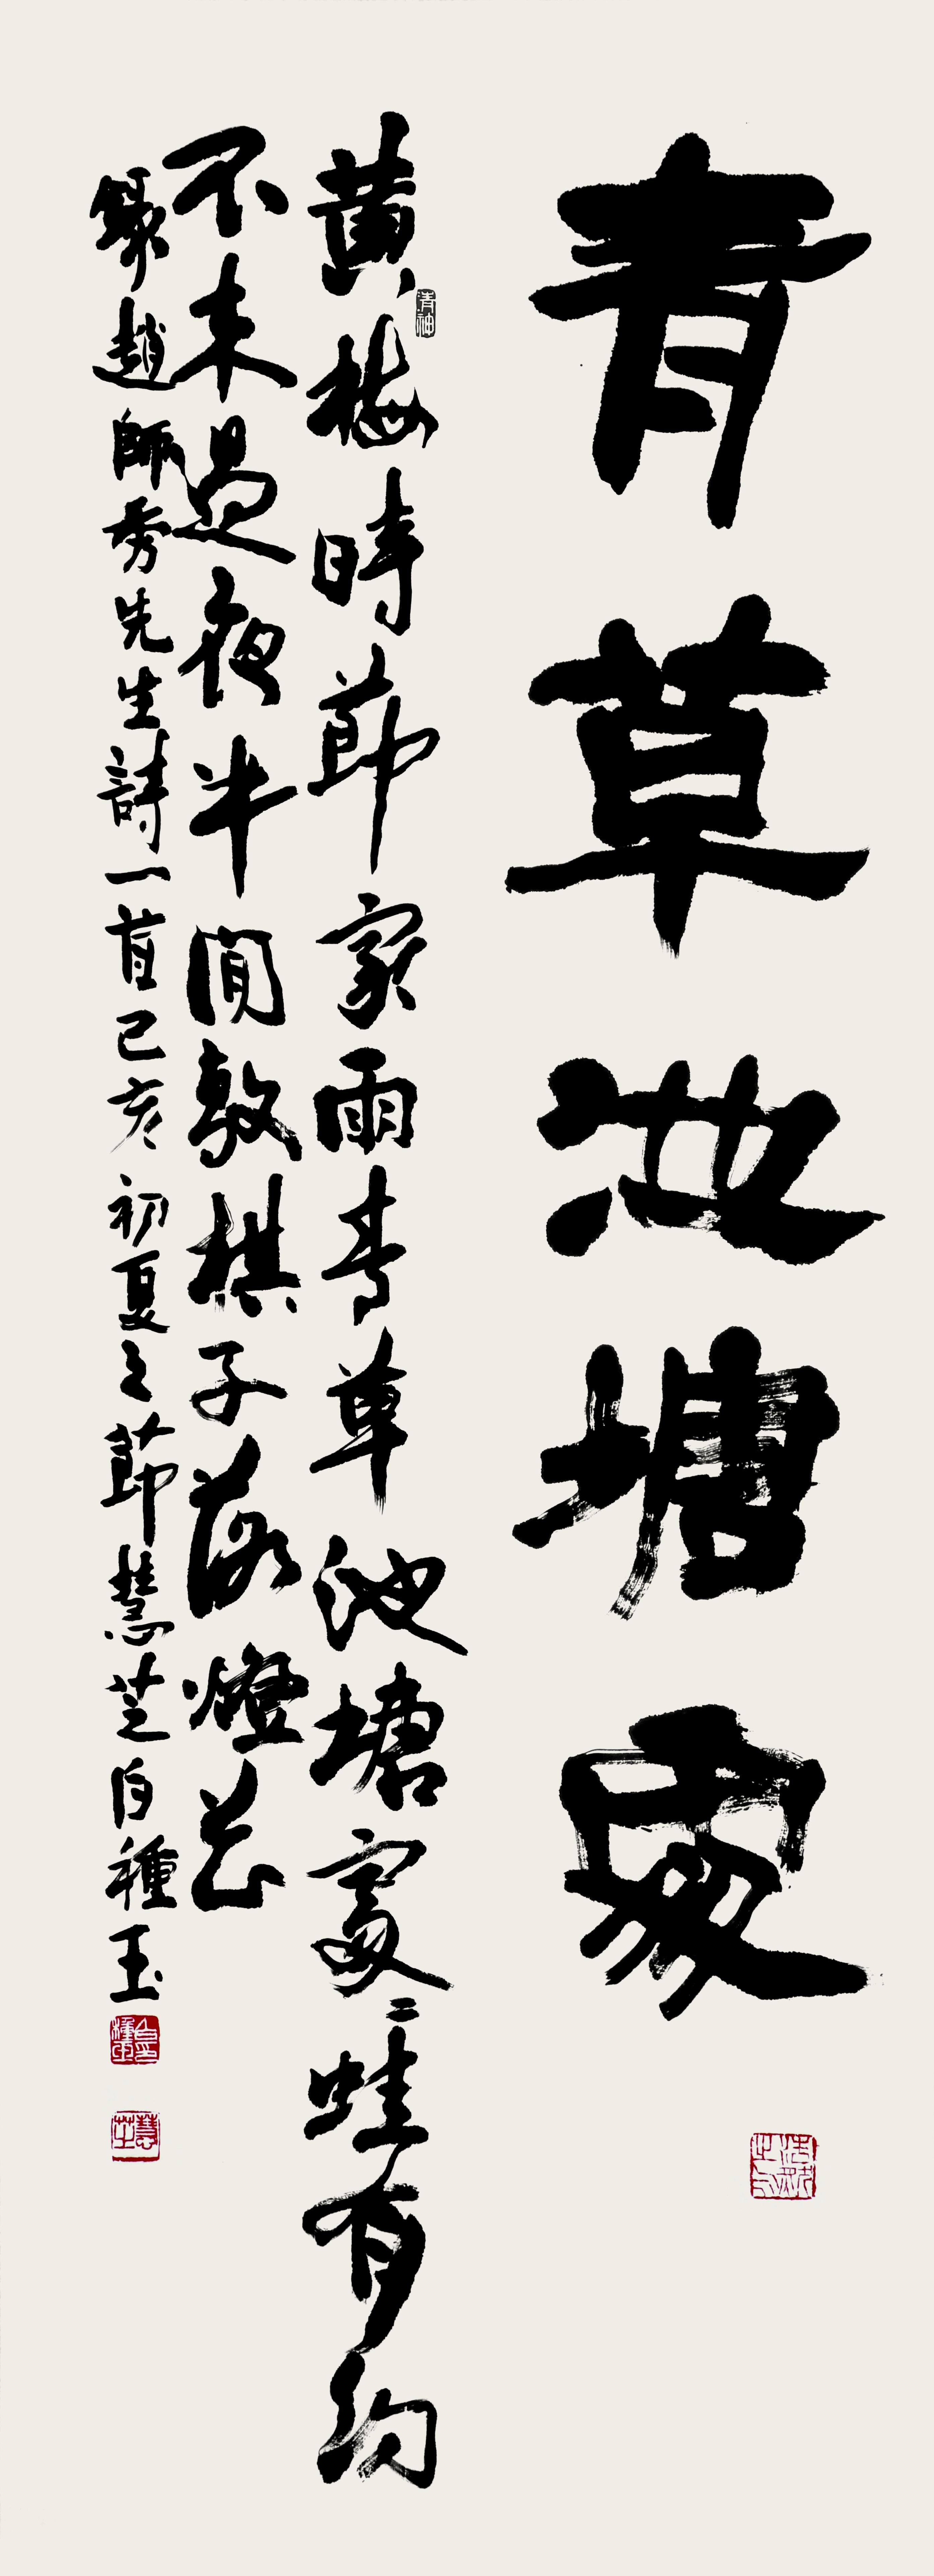 青草池塘
黃梅時節家雨青草池塘處〻蛙有約
不來過夜半閒敲棋子落燈花
錄趙師秀先生詩一首己亥初夏之節慧芝白種玉
清神
慧芝